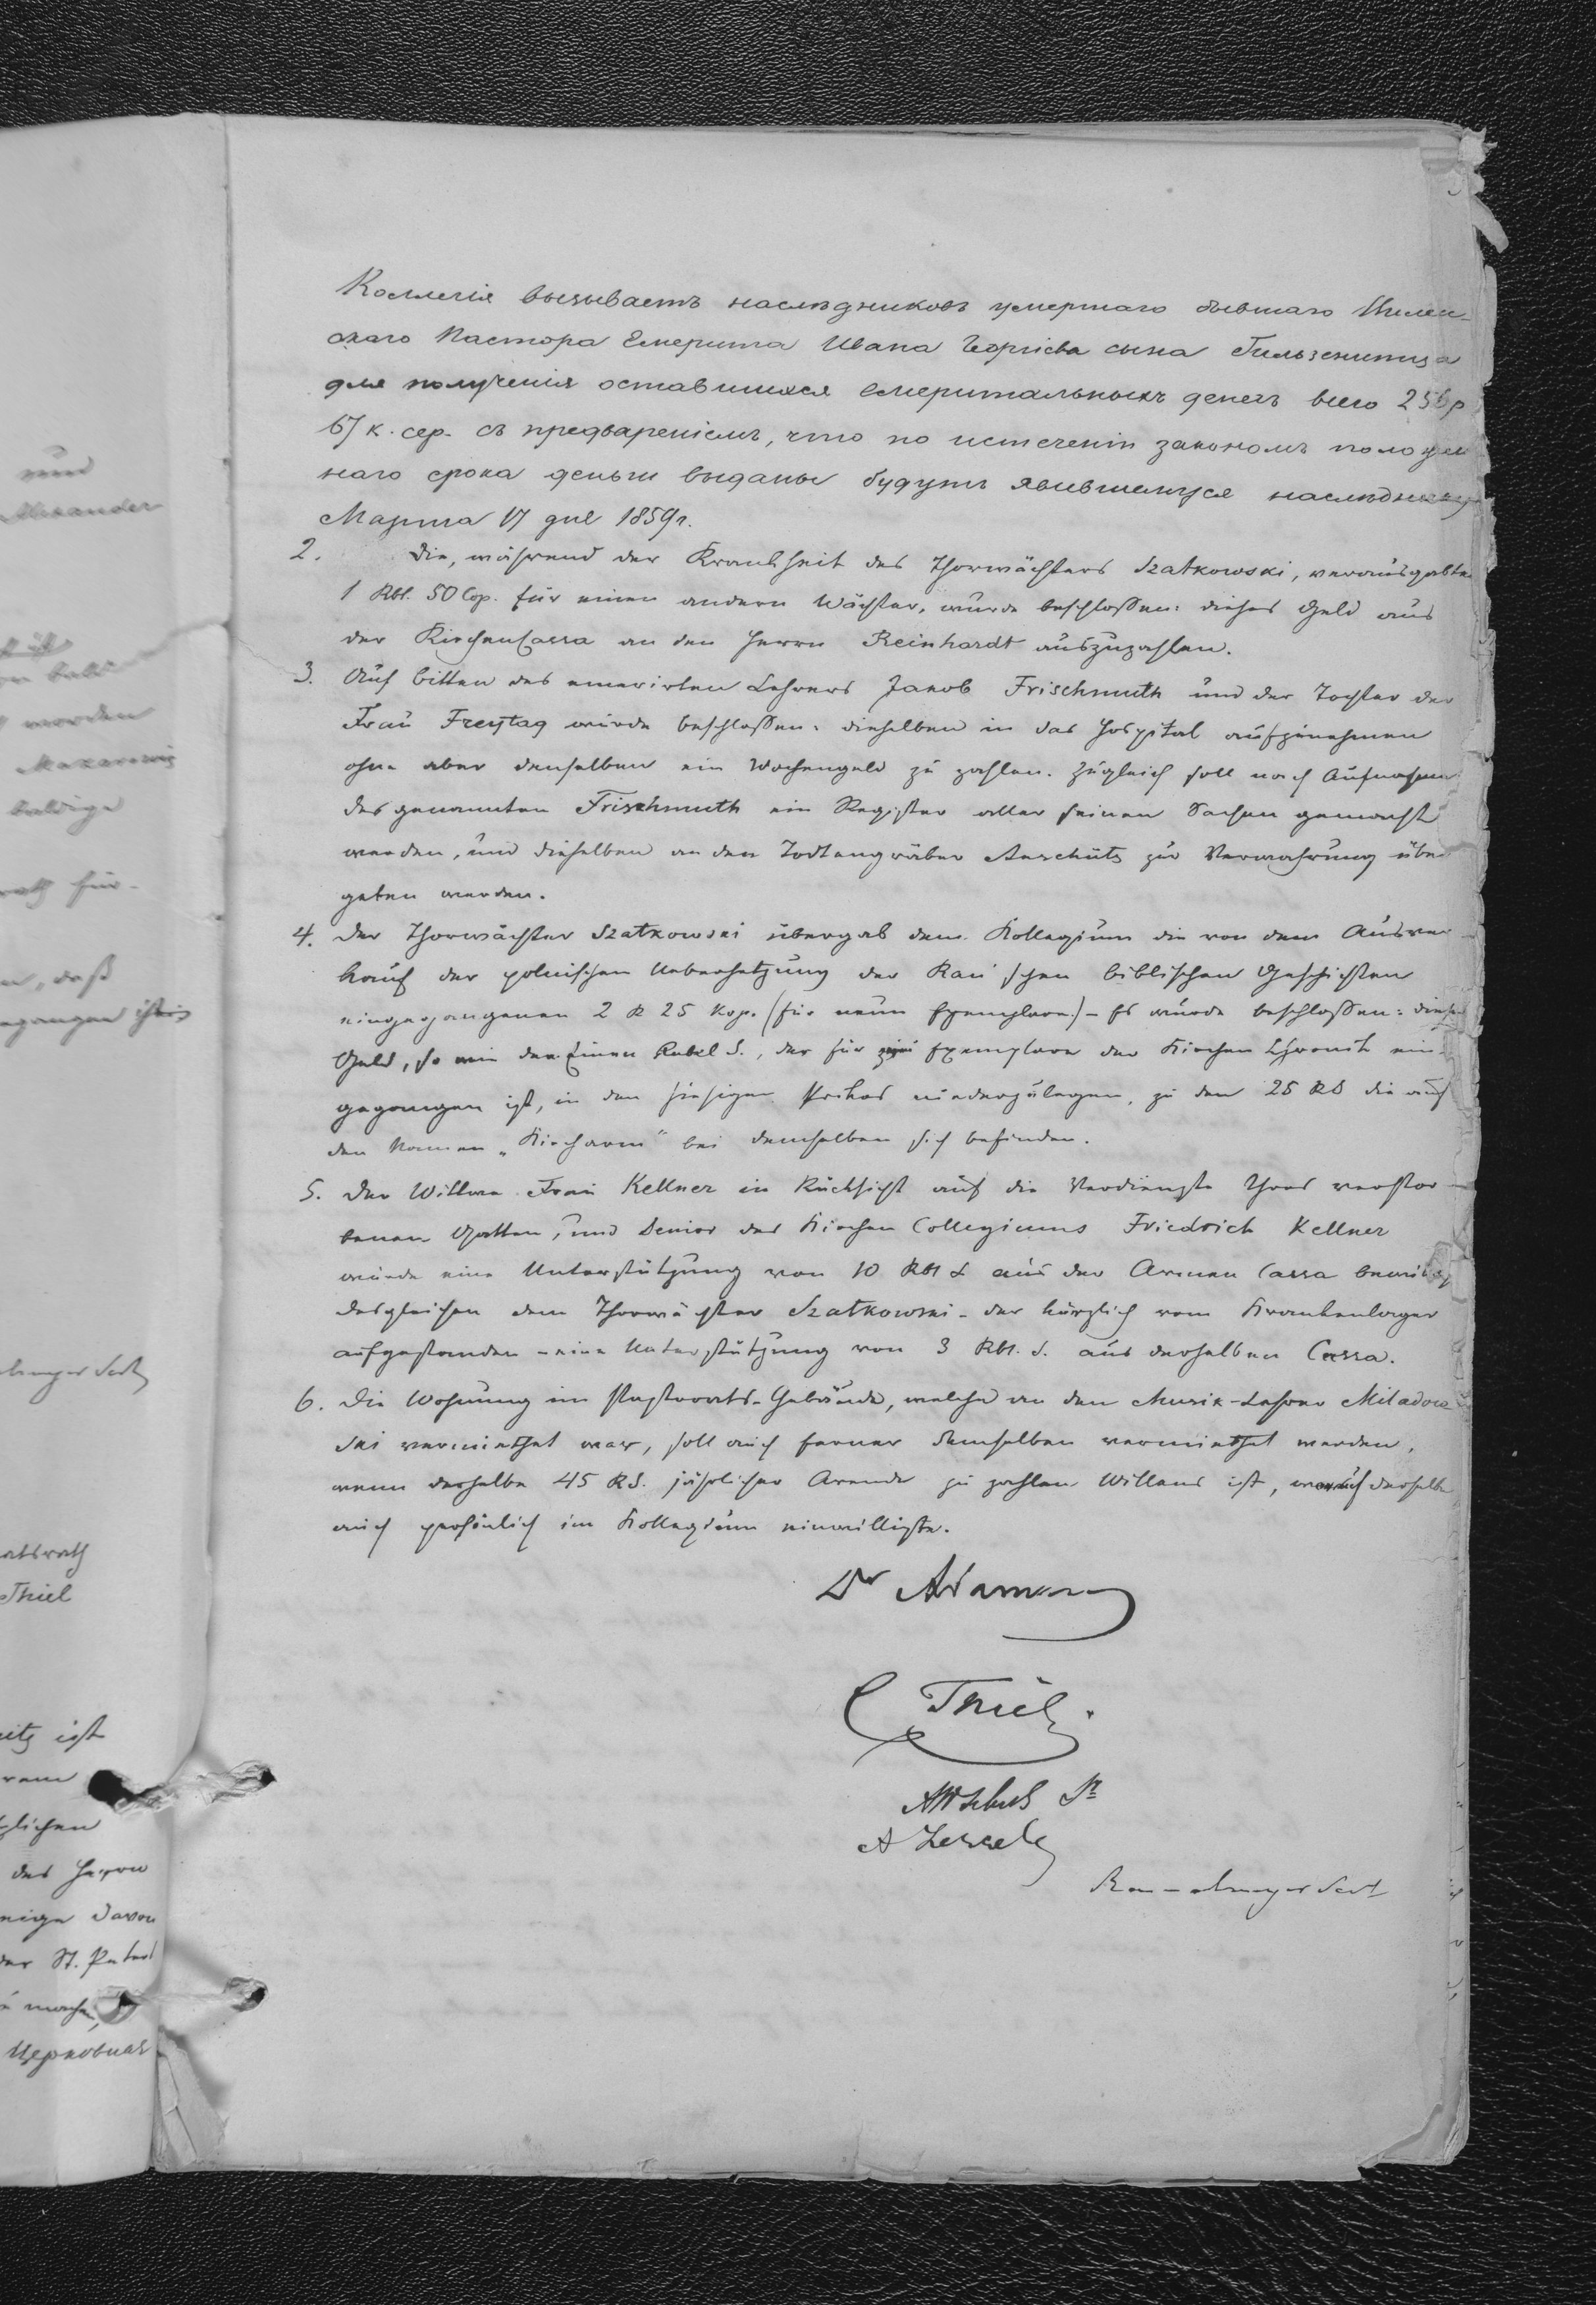 Коллегія вызываетъ наслѣдниковъ умершаго бывшаго
скаго Пастора Емерита Ивана Георгіева сына Гильзенитца
для полученія оставшихся емеритальныхъ денегъ всего 256 р
67 к. сер. съ предвареніемъ, что по истеченіи закономъ положен
наго срока деньги выданы будутъ явившемуся наслѣднику
Марта 17 дня 1859 г.
2. Die, während der Krankheit des Thorwächters Szatkowski, verausgabte
1 Rbl. 50 Cop. für einen andern Wächter, wurde beschloßen: dieses Geld aus
der KirchenCassa an den Herrn Reinhardt auszuzahlen.
3. Auf bitten des emerirten Lehrers Jakob Frischmuth und der Tochter der
Frau Freytag wurde beschloßen: dieselben in das Hospital aufzunehmen
ohne aber denselben ein Wochengeld zu zahlen. Zugleich soll nach Aufnahme
des genannten Frischmuth ein Register aller seiner Sachen gemacht
werden, und dieselben an den Todtengräber Anschütz zur Verwahrung über
geben werden.
4. Der Thorwächter Szatkowski übergab dem Kollegium die von dem Ausver
kauf der polnischen Uebersetzung der Rau'schen biblischen Geschichten
eingegangenen 2 R 25 Kop. (für neun Exemplare) - Es wurde beschloßen: dieses
Geld, so wie den Einen Rubel S., der für Exemplare der Kirchen Chronik ein-
gegangen ist, in den hiesigen Prikas niederzulegen, zu den 25 RS die auf
den Namen „Kircharm" bei demselben sich befinden.
5. Der Wittwe Frau Kellner in Rücksicht auf die Verdienste Ihres verstor
benen Gatten, und Senior des Kirchen Collegiums Friedrich Kellner
wurde eine Unterstützung von 10 Rbl S aus der Armen Cassa bewilligt
desgleichen dem Thorwächter Szatkowski - der kürzlich vom Krankenlager
aufgestanden - eine Unterstützung von 3 Rbl. S. aus derselben Cassa.
6. Die Wohnung im Pastorats-Gebäude, welche an den Musik-Lehrer Miladow
ski vermiethet war, soll auch ferner demselben vermiethet werden,
wenn derselbe 45 RS. jährlicher Arende zu zahlen Willens ist, worauf derselbe
auch persönlich im Kollegium einwilligte.
Dr Adamowicz
C Thiel.